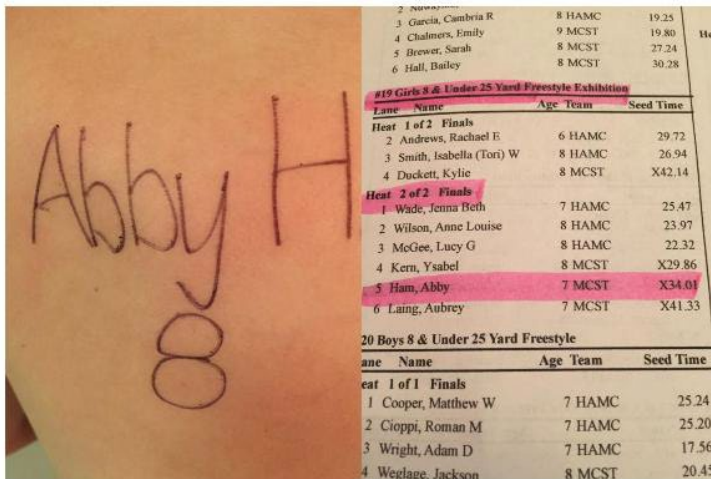 Abby H
8
3 Garcia, Cambria R 8 HAMC 19.25
4 Chalmers, Emily 9 MCST 19.80
5 Brewer, Sarah 8 MCST 27.24
6 Hall, Bailey 8 MCST 30.28
#19 Girls 8 & Under 25 Yard Freestyle Exhibition
Lane Name Age Team Seed Time
Heat 1 of 2 Finals
2 Andrews, Rachael E 6 HAMC 29.72
3 Smith, Isabella (Tori) W 8 HAMC 26.94
4 Duckett, Kylie 8 MCST X42.14
Heat 2 of 2 Finals
1 Wade, Jenna Beth 7 HAMC 25.47
2 Wilson, Anne Louise 8 HAMC 23.97
3 McGee, Lucy G 8 HAMC 22.32
4 Kern, Ysabel 8 MCST X29.86
5 Ham, Abby 7 MCST X34.01
6 Laing, Aubrey 7 MCST X41.33
20 Boys 8 & Under 25 Yard Freestyle
ane Name Age Team Seed Time
eat 1 of 1 Finals
1 Cooper, Matthew W 7 HAMC 25.24
2 Cioppi, Roman M 7 HAMC 25.20
3 Wright, Adam D 7 HAMC 17.56
4 Weglage, Jackson 8 MCST 20.45